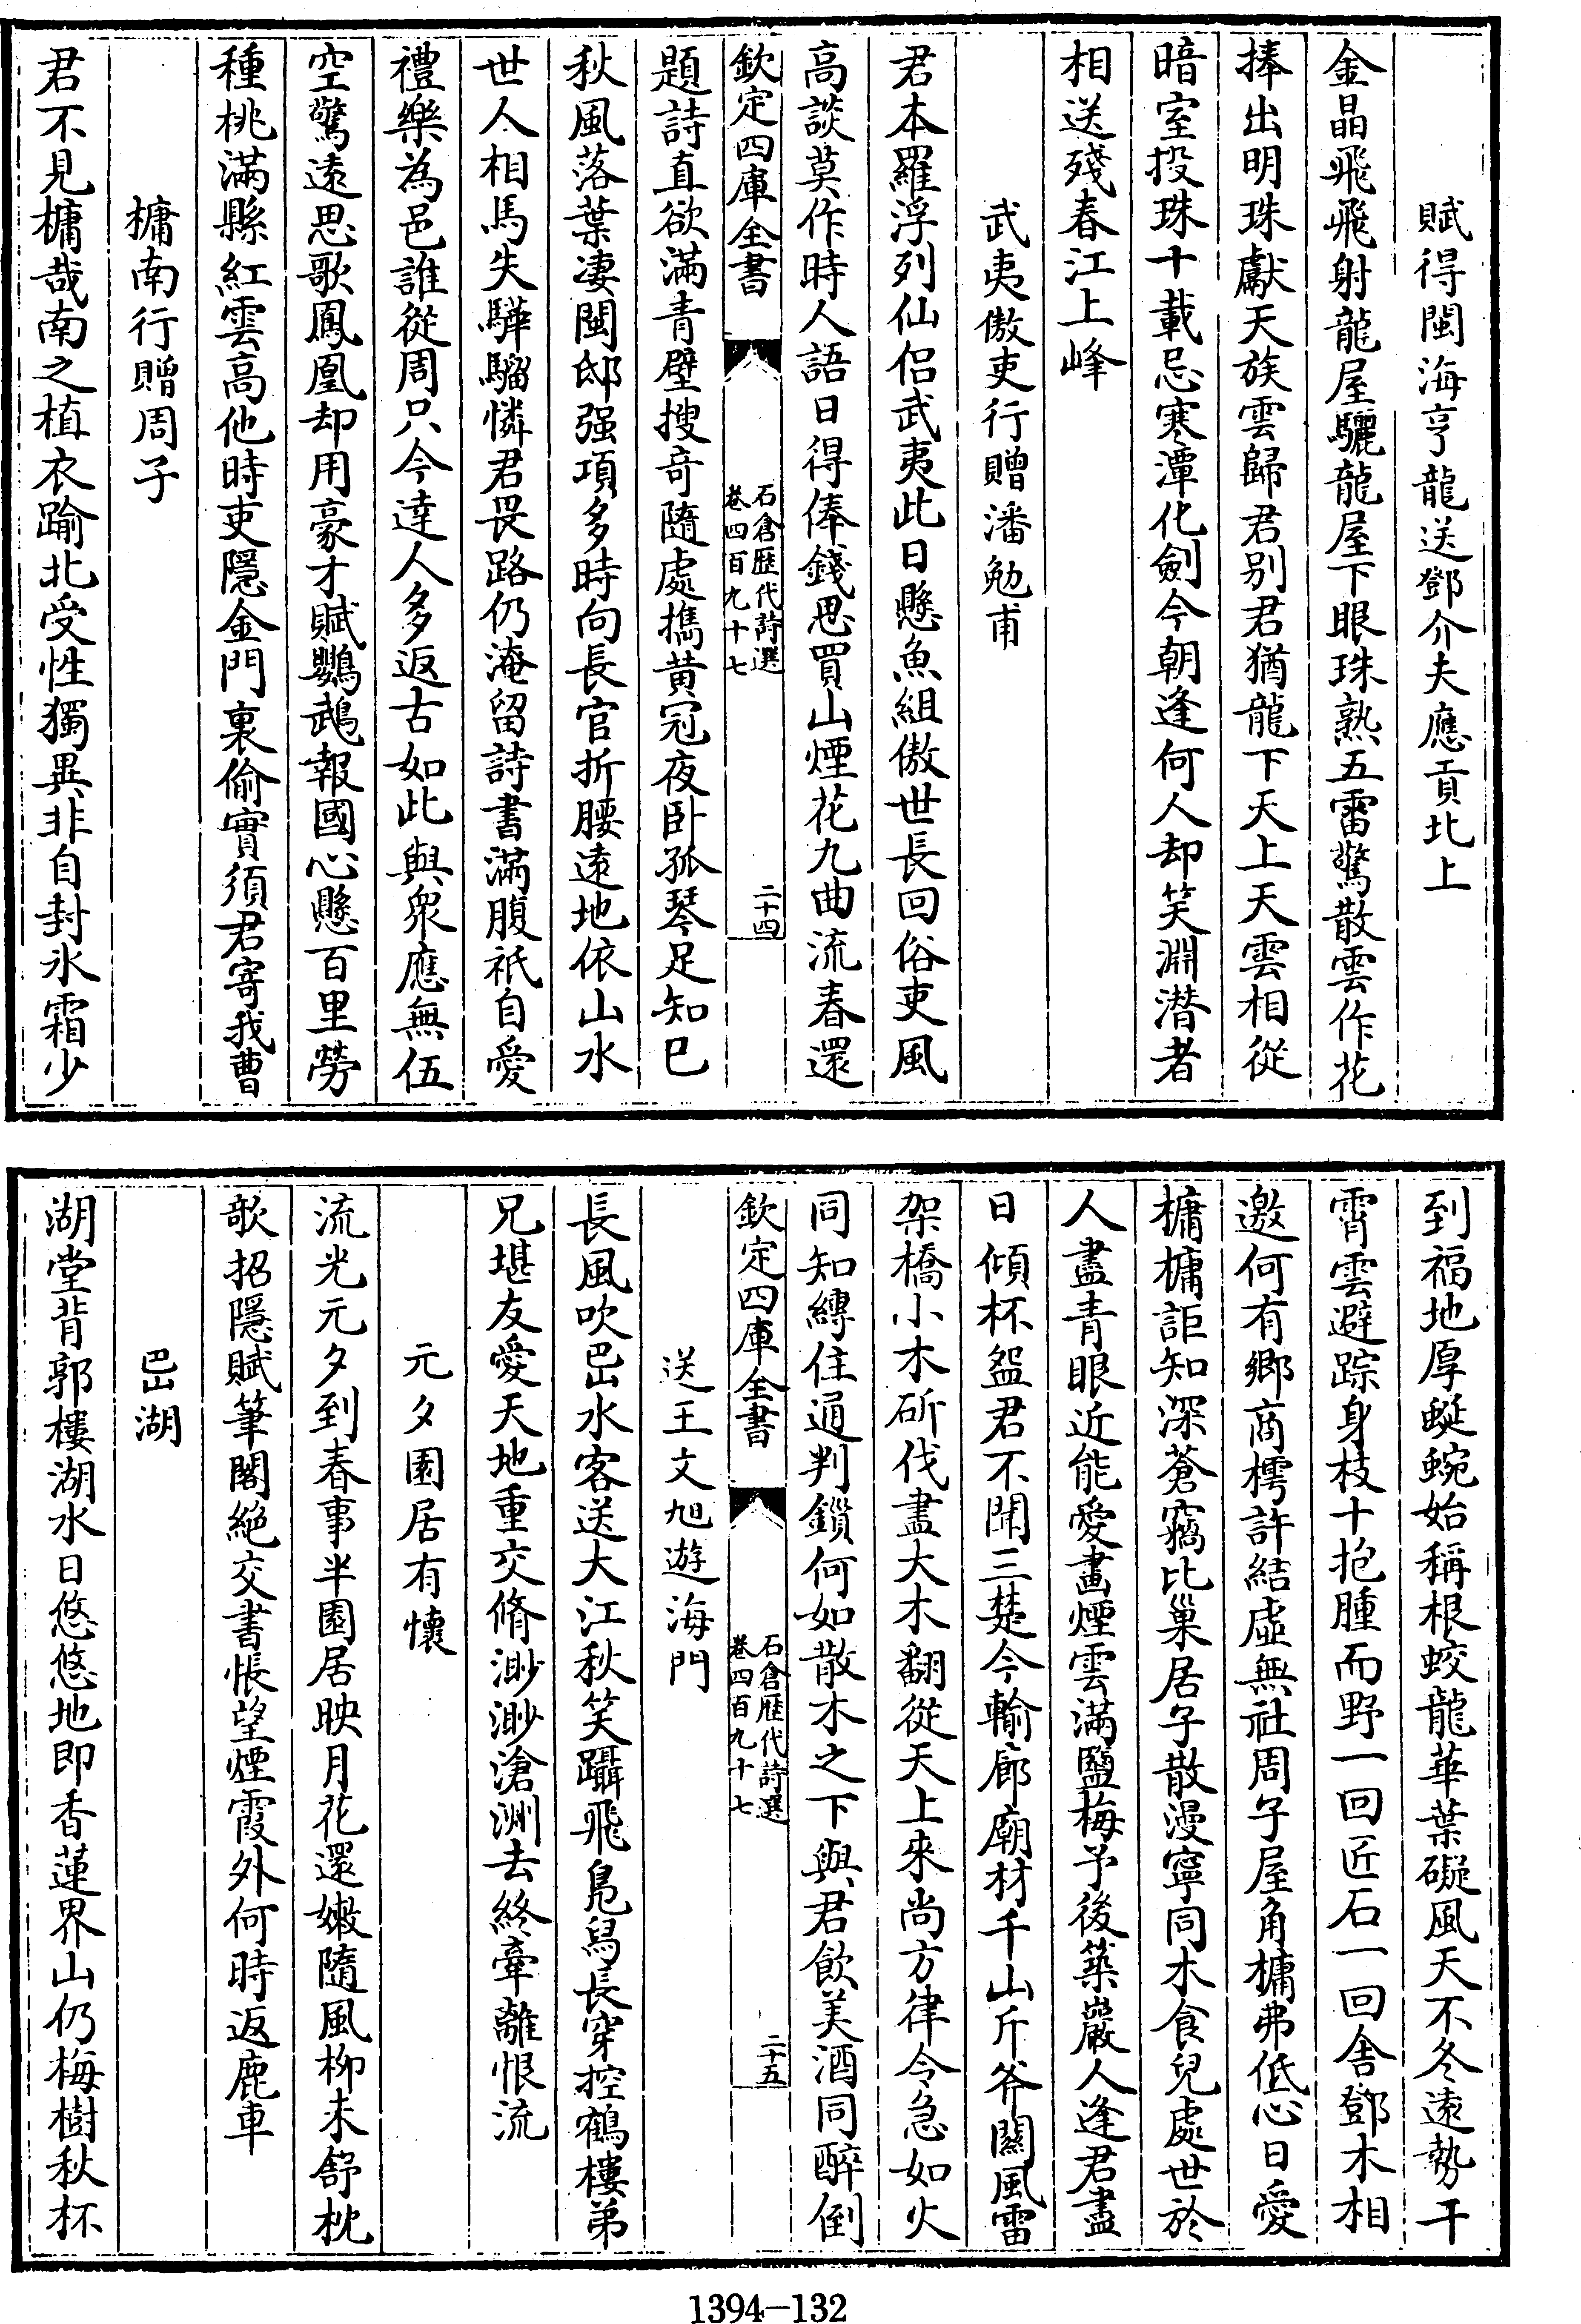 賦得閩海亨龍送鄧介夫應貢北上
金晶飛飛射龍屋驪龍屋下眼珠熟五雷驚散雲作花
捧出明珠獻天族雲歸君别君猶龍下天上天雲相從
暗室投珠十載忌寒潭化劍今朝逢何人却笑淵潛者
相送殘春江上峰
武夷傲吏行贈潘勉甫
君本羅浮列仙侣武夷此日懸魚組傲世長回俗吏風
高談莫作時人語日得俸錢思買山煙花九曲流春還
欽定四庫全書
石倉歷代詩選
卷四百九十七
二十四
題詩直欲滿青壁搜竒隨處携黄冠夜卧孤琴足知已
秋風落葉凄閩邸强項多時向長官折腰遠地依山水
世人相馬失驊騮憐君畏路仍淹留詩書滿腹祇自愛
禮樂為邑誰從周只今達人多返古如此與衆應無伍
空驚遠思歌鳳凰却用豪才賦鸚鵡報國心懸百里勞
種桃滿縣紅雲高他時吏隱金門裏偷實須君寄我曹
槦南行贈周子
君不見槦哉南之植衣踰北受性獨異非自封氷霜少
到福地厚蜒蜿始稱根蛟龍華葉礙風天不冬遠勢干
霄雲避踪身枝十抱腫而野一回匠石一回舍鄧木相
邀何有鄉商樗許結虛無社周子屋角槦弗低心日愛
槦槦詎知深蒼竊比巢居子散漫寧同木食兒處世於
人盡青眼近能愛畫煙雲滿鹽梅予後築巖人逢君盡
日傾杯盌君不聞三楚今輸廊廟材千山斤斧闘風雷
架橋小木斫伐盡大木翻從天上來尚方律令急如火
同知縛住通判鎖何如散木之下與君飲美酒同醉倒
欽定四庫全書
石倉歷代詩選
卷四百九十七
二十五
送王文旭遊海門
長風吹岊水客送大江秋笑躡飛鳧舄長穿控鶴樓弟
兄堪友愛天地重交脩渺渺滄洲去終牽離恨流
元夕園居有懷
流光元夕到春事半園居映月花還嫩隨風柳未舒枕
歌招隱賦筆閣絶交書悵望煙霞外何時返鹿車
岊湖
湖堂背郭樓湖水日悠悠地即香蓮界山仍梅樹秋杯
1394—132